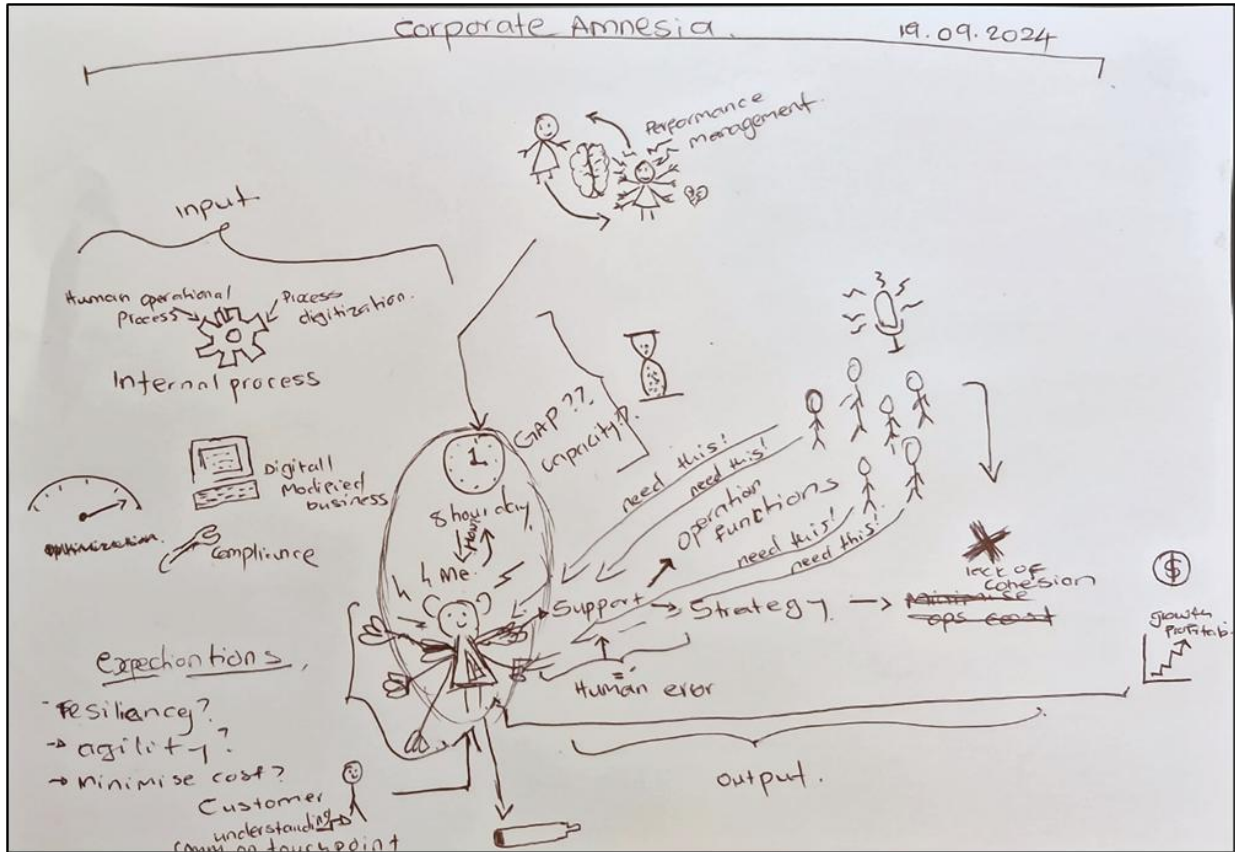 Corporate Amnesia.
19.09.2024
Performance
management.
input
Human operational
process
Process
digitization.
Internal process
GAP ??
capacity?
1
8 hour day
Digitall
Modified
business
optimization.
Compliance
Me.
need this!
need this!
operation
functions
need this!
need this!
Support
Strategy
lack of
cohesion
Minimise
ops cost
$
growth
profitab.
Human error
Expechantions
resiliancy?
agility?
minimise cost?
Customer
understanding
common touchpoint
output.